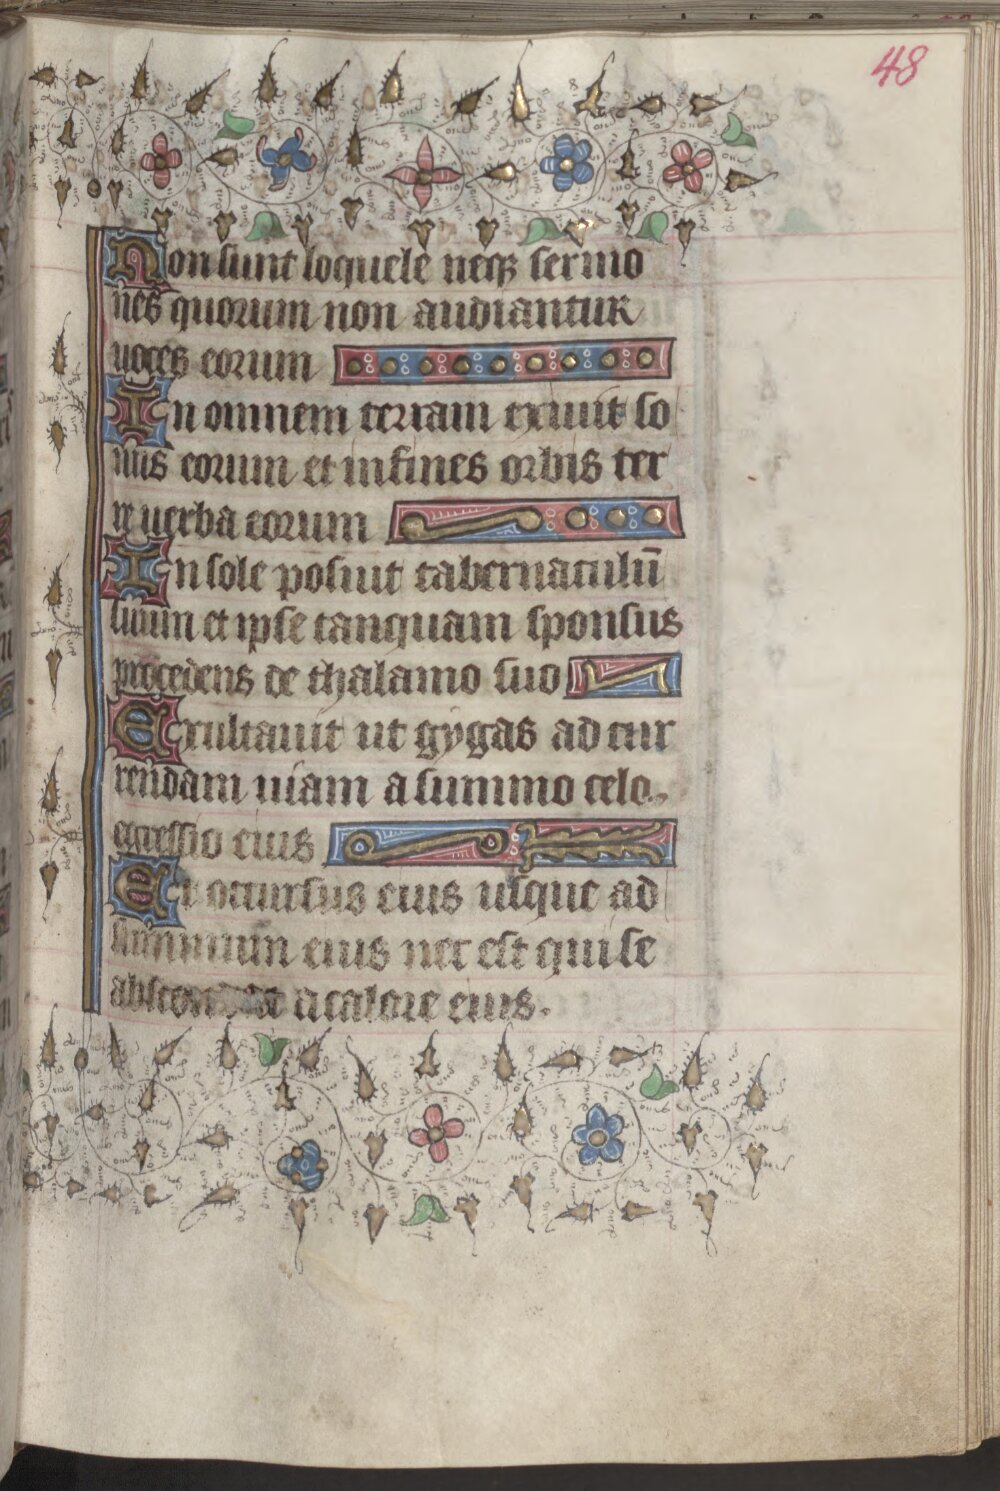 48
Non sunt loquele neqꝫ sermo
nes quorum non audiantur
uoces eorum
In omnem terram exiuit so
nus eorum et in fines orbis ter
re uerba eorum
In sole posuit tabernaculū
suum et ipse tanquam sponsus
procedens de thalamo suo
Exultauit ut gygas ad cur
rendam uiam a summo celo
egressio eius
Et occursus eius usque ad
summum eius nec est qui se
a calore eius.